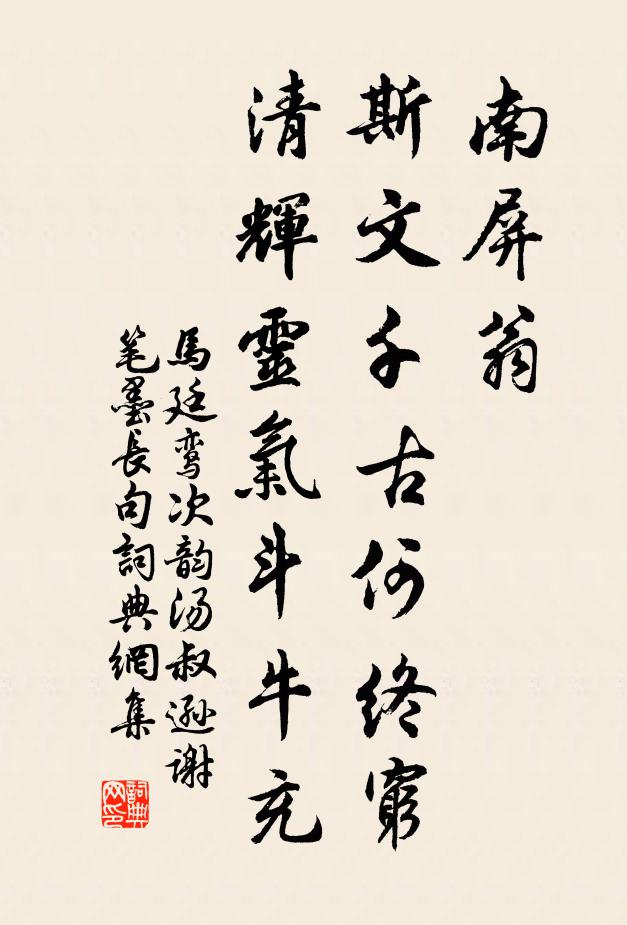 南屏翁
斯文千古何終窮
清輝靈氣斗牛充
馬廷鸾次韵汤叔遜謝
笔墨長句詞典網集
詞典网印